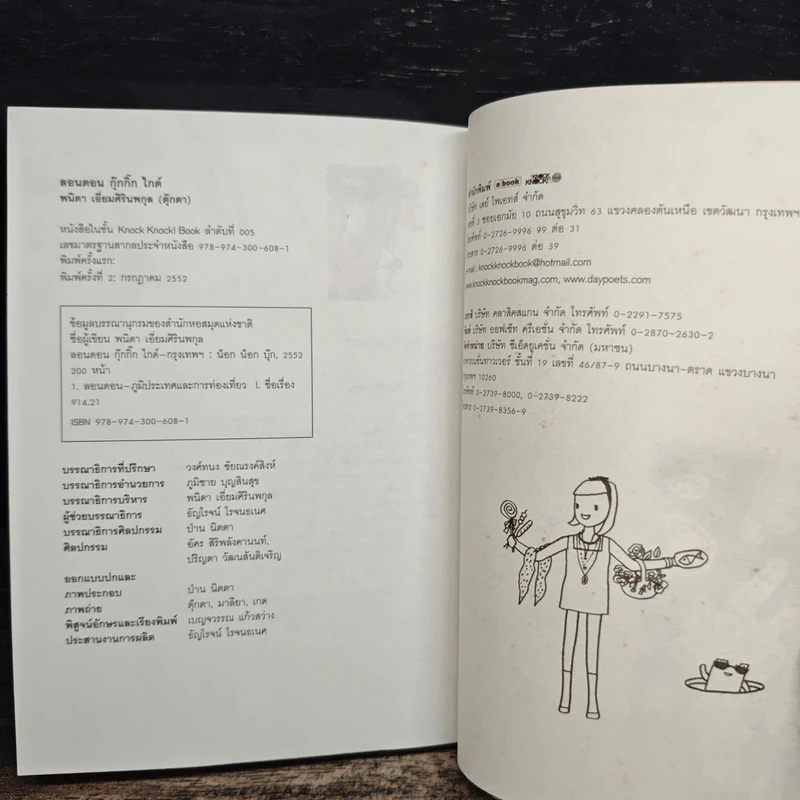 ลอนดอน กุ๊กกิ๊ก ไกด์
พนิดา เอี่ยมศิรินพกุล (ตุ๊กตา)
หนังสือในชั้น Knock Knock! Book ลำดับที่ 005
เลขมาตรฐานสากลประจำหนังสือ 978-974-300-608-1
พิมพ์ครั้งแรก:
พิมพ์ครั้งที่ 2: กรกฎาคม 2552
ข้อมูลบรรณานุกรมของสำนักหอสมุดแห่งชาติ
ชื่อผู้เขียน พนิดา เอี่ยมศิรินพกุล
ลอนดอน กุ๊กกิ๊ก ไกด์-กรุงเทพฯ : น็อก น็อก บุ๊ก, 2552
200 หน้า
1. ลอนดอน-ภูมิประเทศและการท่องเที่ยว I. ชื่อเรื่อง
914.21
ISBN 978-974-300-608-1
บรรณาธิการที่ปรึกษา วงศ์ทนง ชัยณรงค์สิงห์
บรรณาธิการอำนวยการ ภูมิชาย บุญสินสุข
บรรณาธิการบริหาร พนิดา เอี่ยมศิรินพกุล
ผู้ช่วยบรรณาธิการ ธัญโรจน์ โรจนธเนศ
บรรณาธิการศิลปกรรม ป่าน นิตตา
ศิลปกรรม อัคร สิริพลังคานนท์,
ปริญดา วัฒนสันติเจริญ
ออกแบบปกและ
ภาพประกอบ ป่าน นิตตา
ภาพถ่าย ตุ๊กตา, มาลียา, เกด
พิสูจน์อักษรและเรียงพิมพ์ เบญจวรรณ แก้วสว่าง
ประสานงานการผลิต ธัญโรจน์ โรจนธเนศ
สำนักพิมพ์ a book KNOCK KNOCK!
บริษัท เดย์ โพเอทส์ จำกัด
เลขที่ 3 ซอยเอกมัย 10 ถนนสุขุมวิท 63 แขวงคลองตันเหนือ เขตวัฒนา กรุงเทพฯ
โทรศัพท์ 0-2726-9996 99 ต่อ 31
โทรสาร 0-2726-9996 ต่อ 39
e-mail : knockknockbook@hotmail.com
www.knockknockbookmag.com, www.daypoets.com
แยกสี บริษัท คลาสิคสแกน จำกัด โทรศัพท์ 0-2291-7575
พิมพ์ บริษัท ออฟเซ็ท ครีเอชั่น จำกัด โทรศัพท์ 0-2870-2630-2
จัดจำหน่าย บริษัท ซีเอ็ดยูเคชั่น จำกัด (มหาชน)
อาคารเนชั่นทาวเวอร์ ชั้นที่ 19 เลขที่ 46/87-9 ถนนบางนา-ตราด แขวงบางนา
กรุงเทพฯ 10260
โทรศัพท์ 0-2739-8000, 0-2739-8222
โทรสาร 0-2739-8356-9